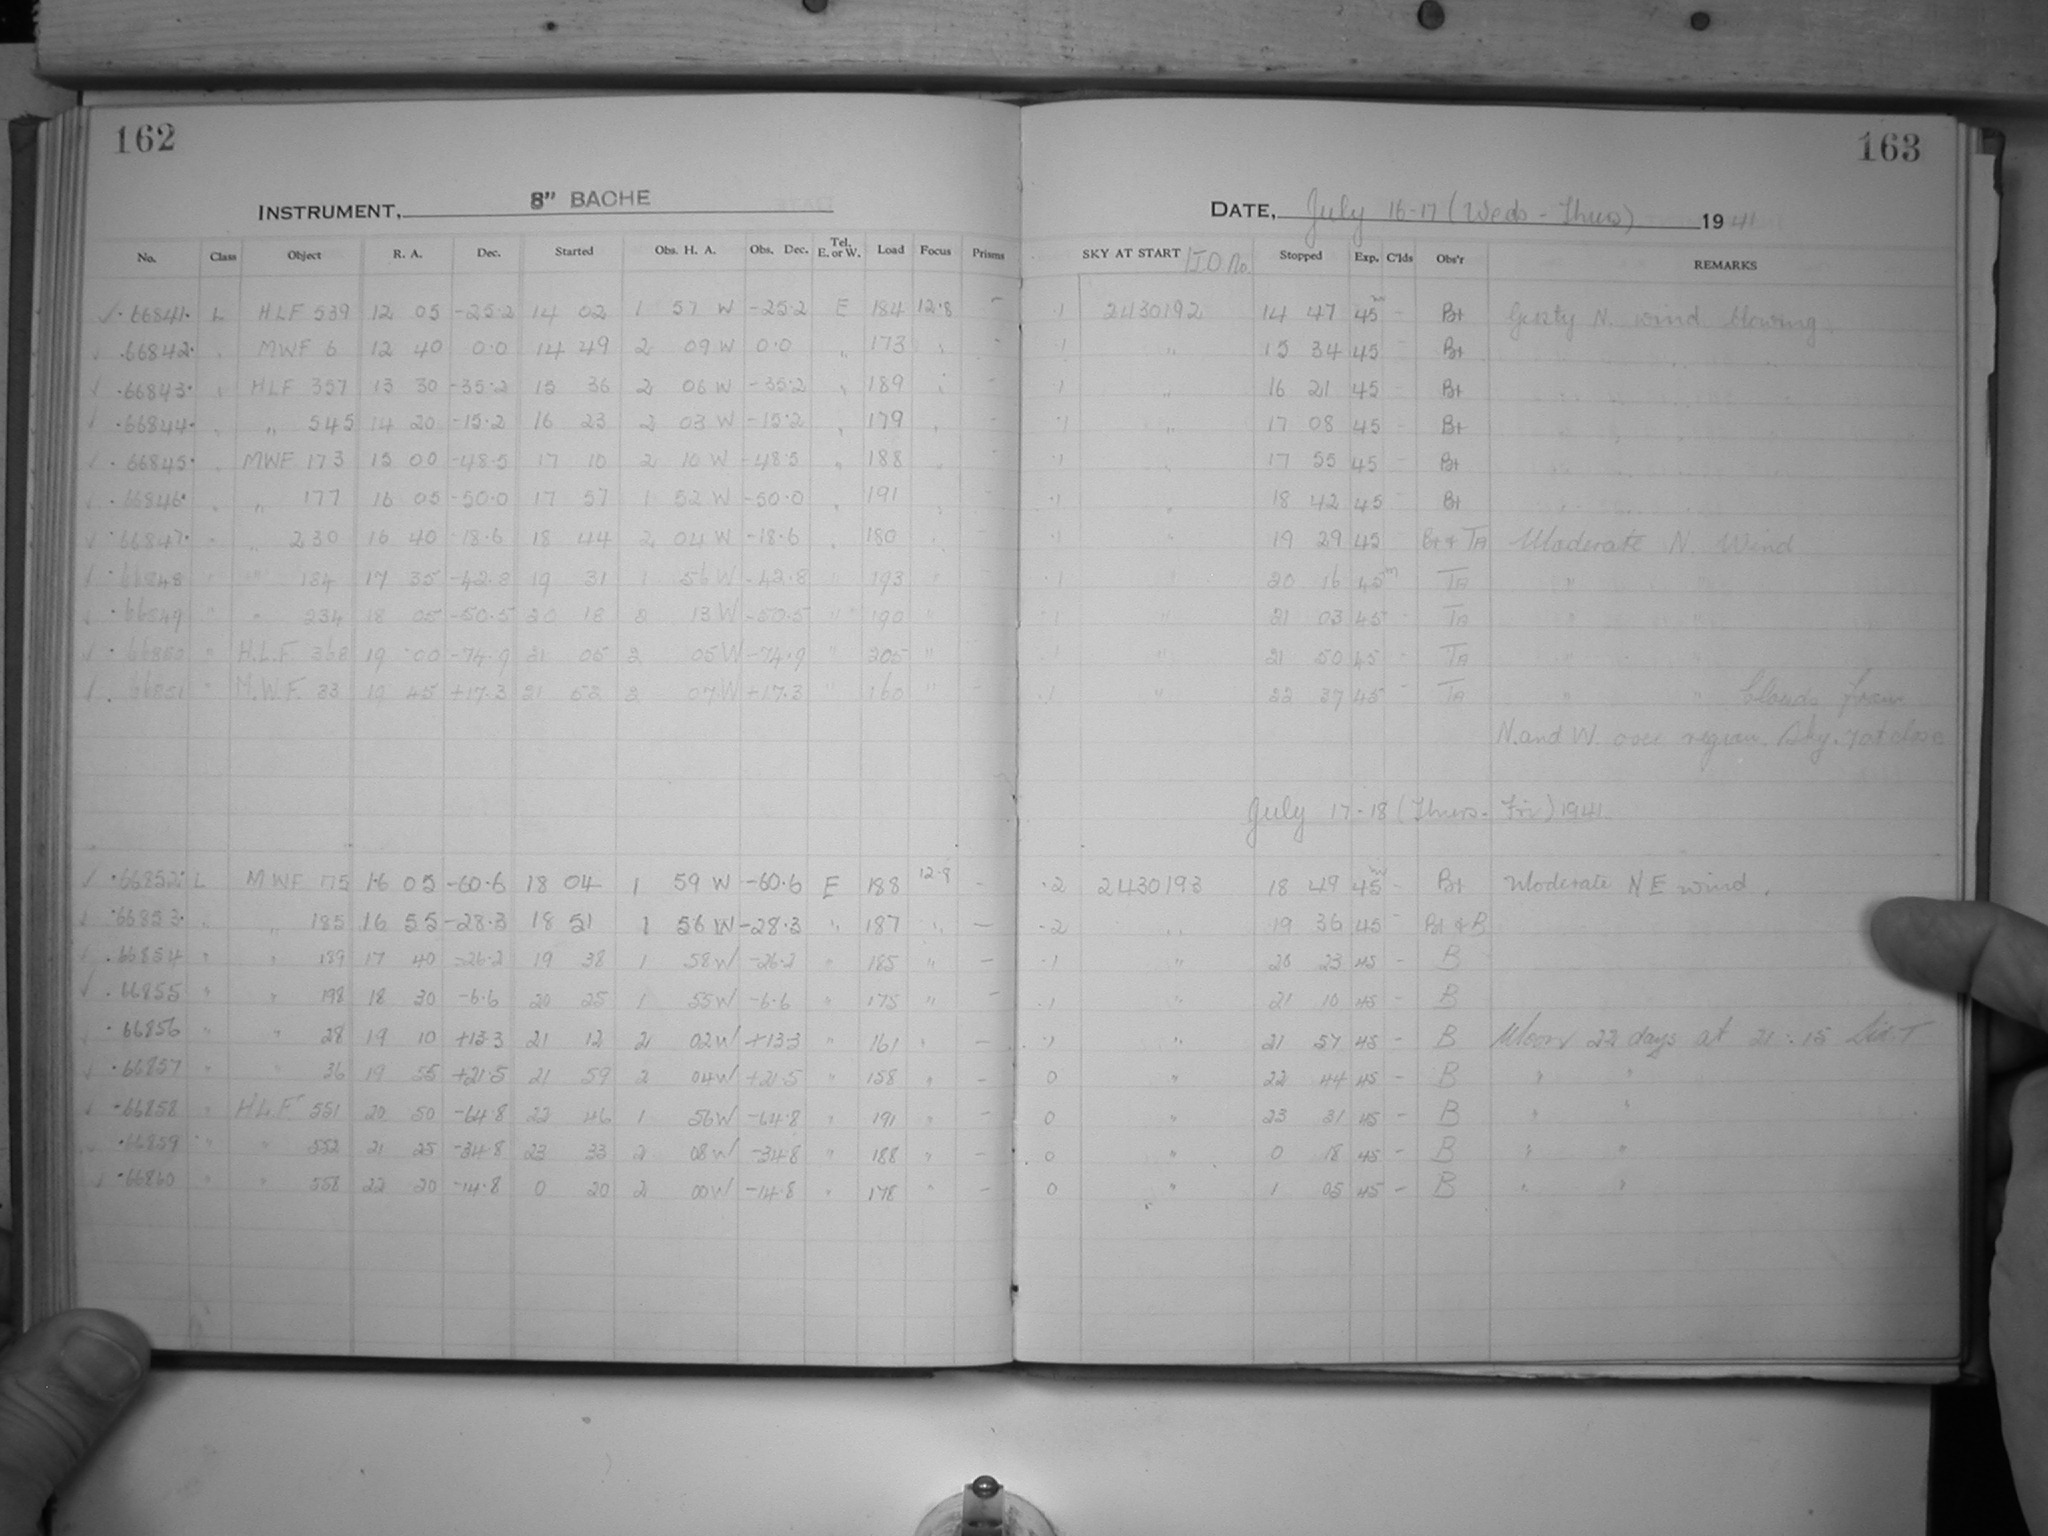 162
163
INSTRUMENT, 8" BACHE
DATE, July 16-17 (Weds - Thurs) 1941
No. Class Object R. A. Dec. Started Obs. H. A. Obs. Dec. Tel. E. or W. Load Focus Prisms SKY AT START J.D. No. Stopped Exp. C'lds Obs'r REMARKS
✓ 66841 L HLF 539 12 05 -25.2 14 02 1 57 W -25.2 E 184 12.8 - .1 2430192 14 47 45m - Bt Gusty N. wind blowing.
✓ 66842 " MWF 6 12 40 0.0 14 49 2 09 W 0.0 " 173 " - .1 " 15 34 45 - Bt " " "
✓ 66843 " HLF 357 13 30 -35.2 15 36 2 06 W -35.2 " 189 " - .1 " 16 21 45 - Bt " " "
✓ 66844 " " 545 14 20 -15.2 16 23 2 03 W -15.2 " 179 " - .1 " 17 08 45 - Bt " " "
✓ 66845 " MWF 173 15 00 -48.5 17 10 2 10 W -48.5 " 188 " - .1 " 17 55 45 - Bt " " "
✓ 66846 " " 177 16 05 -50.0 17 57 1 52 W -50.0 " 191 " - .1 " 18 42 45 - Bt " " "
✓ 66847 " " 230 16 40 -18.6 18 44 2 04 W -18.6 " 180 " - .1 " 19 29 45 Bt & TA Moderate N. Wind
✓ 66848 " " 184 17 35 -42.8 19 31 1 56 W -42.8 " 193 " - .1 " 20 16 45m TA " "
✓ 66849 " " 234 18 05 -50.5 20 18 2 13 W -50.5 " 190 " - .1 " 21 03 45 - TA " "
✓ 66850 " H.L.F. 368 19 00 -74.9 21 05 2 05 W -74.9 " 205 " - .1 " 21 50 45 - TA " "
✓ 66851 " M.W.F. 33 19 45 +17.3 21 52 2 07 W +17.3 " 160 " - .1 " 22 37 45 - TA " " Clouds from
N. and W. over region. Sky .7 at close
July 17-18 (Thurs - Fri) 1941
✓ 66852 L MWF 175 16 05 -60.6 18 04 1 59 W -60.6 E 188 12.8 - .2 2430193 18 49 45m - Bt Moderate NE wind.
✓ 66853 " " 185 16 55 -28.3 18 51 1 56 W -28.3 " 187 " - .2 " 19 36 45 - Bt & B
✓ 66854 " " 189 17 40 -26.2 19 38 1 58 W -26.2 " 185 " - .1 " 20 23 45 - B
✓ 66855 " " 198 18 30 -6.6 20 25 1 55 W -6.6 " 175 " - .1 " 21 10 45 - B
66856 " " 28 19 10 +13.3 21 12 2 02 W +13.3 " 161 " - .1 " 21 57 45 - B Moon 22 days at 21:15 Sid. T
✓ 66857 " " 36 19 55 +21.5 21 59 2 04 W +21.5 " 158 " - 0 " 22 44 45 - B " "
✓ 66858 " HLF 551 20 50 -64.8 22 46 1 56 W -64.8 " 191 " - 0 " 23 31 45 - B " "
✓ 66859 " " 552 21 25 -34.8 23 33 2 08 W -34.8 " 188 " - 0 " 0 18 45 - B " "
✓ 66860 " " 558 22 20 -14.8 0 20 2 00 W -14.8 " 178 " - 0 " 1 05 45 - B " "